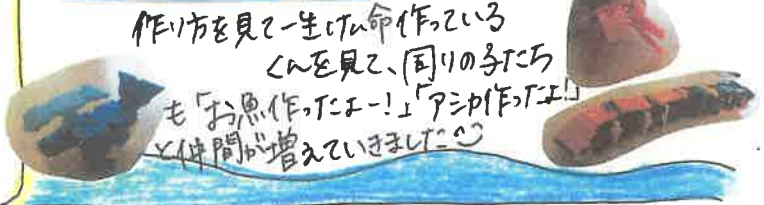 作り方を見て一生けん命作っている
くんを見て、周りの子たち
も「お魚作ったよー!」「アシカ作ったよ!」
と仲間が増えていきました^^